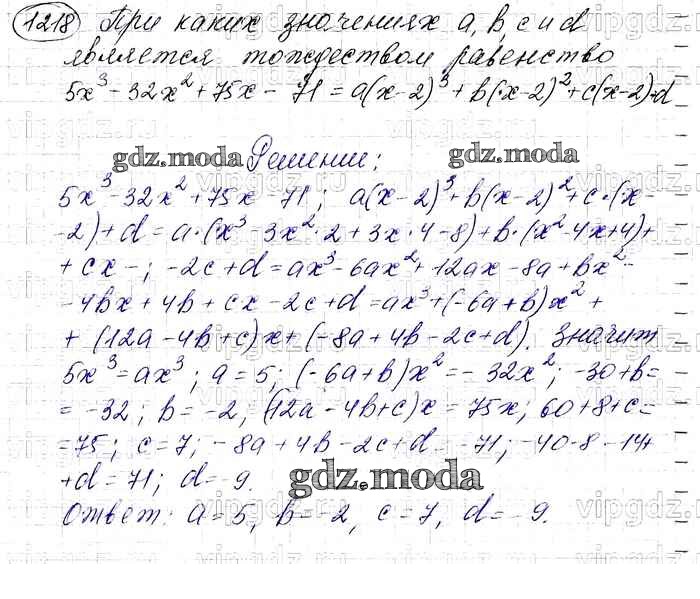 1218 При каких значениях a, b, c и d
является тождеством равенство
5x³ - 32x² + 75x - 71 = a(x-2)³ + b(x-2)² + c(x-2)+d
gdz.moda Решение: gdz.moda
5x³ - 32x² + 75x - 71; a(x-2)³ + b(x-2)² + c·(x-
-2) + d = a·(x³ - 3x²·2 + 3x·4 - 8) + b·(x² - 4x + 4) +
+ cx -; -2c + d = ax³ - 6ax² + 12ax - 8a + bx² -
- 4bx + 4b + cx - 2c + d = ax³ + (-6a + b)x² +
+ (12a - 4b + c)x + (-8a + 4b - 2c + d). Значит
5x³ = ax³; a = 5; (-6a + b)x² = -32x²; -30 + b =
= -32; b = -2, (12a - 4b + c)x = 75x; 60 + 8 + c =
= 75; c = 7; -8a + 4b - 2c + d = -71; -40 - 8 - 14 +
+ d = 71; d = -9.
gdz.moda
Ответ: a = 5, b = -2, c = 7, d = -9.